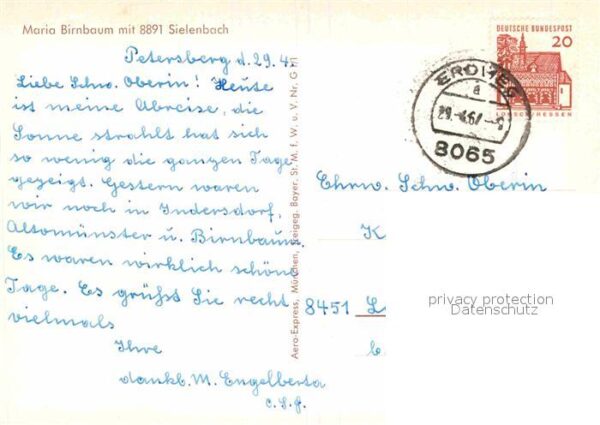 Maria Birnbaum mit 8891 Sielenbach
Petersberg d. 29. 4.
Liebe Schw. Oberin! Heute
ist meine Abreise, die
Sonne strahlt hat sich
so wenig die ganzen Tage
gezeigt. Gestern waren
wir noch in Indersdorf,
Altomünster u. Birnbaum.
Es waren wirklich schöne
Tage. Es grüßt Sie recht
vielmals
Ihre
dankb. M. Engelberta
c.s.f.
Aero-Express, München, Freigeg. Bayer. St. M. f. W. u. V. Nr. G
DEUTSCHE BUNDESPOST
20
LORSCH/HESSEN
ERDWEG
a
29.-4.67
8065
Ehrw. Schw. Oberin
K
8451 L
privacy protection
Datenschutz